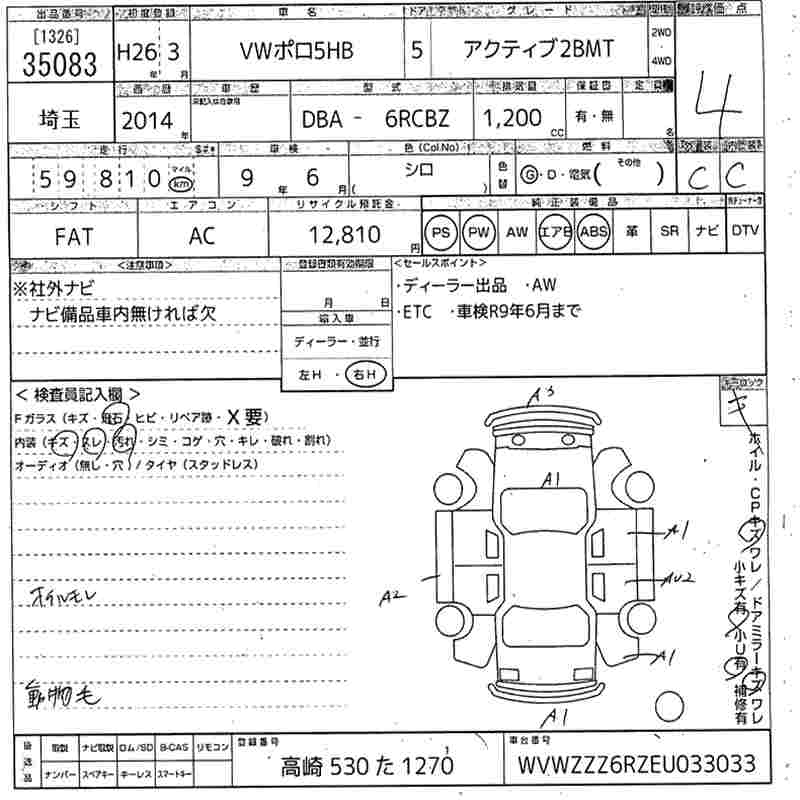 出品番号 初度登録 車名 ドア グレード
[1326]
35083
H26 年 3 月
VWポロ5HB
5
アクティブ2BMT
2WD
・
4WD
評価点
4
埼玉
2014 年
車歴
型式
DBA - 6RCBZ
排気量
1,200 CC
保証書
有・無
定員
名
走行
59810
マイル
km
車検
9 年 6 月
色(Col.No)
シロ
( )
色替
燃料
G・D・電気( その他 )
外装
C
内装
C
シフト
FAT
エアコン
AC
リサイクル預託金
12,810 円
純正装備品
PS PW AW エアB ABS 革 SR ナビ DTV
<注意事項>
※社外ナビ
ナビ備品車内無ければ欠
登録書類有効期限
月 日
輸入車
ディーラー・並行
左H・右H
<セールスポイント>
・ディーラー出品 ・AW
・ETC ・車検R9年6月まで
<検査員記入欄>
Fガラス(キズ・飛石・ヒビ・リペア跡・X要)
内装(キズ・スレ・汚れ・シミ・コゲ・穴・キレ・破れ・割れ)
オーディオ(無し・穴)/タイヤ(スタッドレス)
オイルモレ
動物毛
A3
A1
A1
A2
AU2
A1
A1
キーロック
キ
ホイル・CPキズワレ/ドアミラーキズワレ
小キズ有・小U有・補修有
後送品
取説 ナビ取説 ロム/SD B-CAS リモコン
ナンバー スペアキー キーレス スマートキー
登録番号
高崎 530 た 1270
車台番号
WVWZZZ6RZEU033033